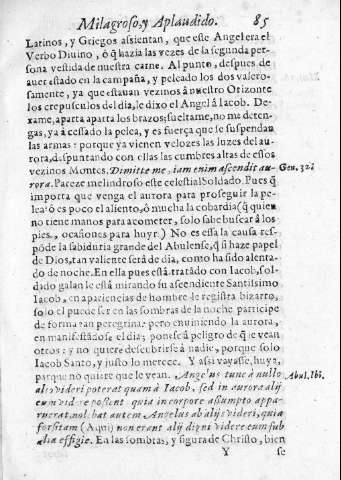 Milagroso, y Aplaudido. 85
Latinos, y Griegos assientan, que este Angel era el
Verbo Diuino, ò q̃ hazia las vezes de la segunda per-
sona vestida de nuestra carne. Al punto, despues de
auer estado en la campaña, y peleado los dos valero-
samente, ya que estauan vezinos à nuestro Orizonte
los crepusculos del dia, le dixo el Angel â Iacob. De-
xame, aparta aparta los brazos; sueltame, no me deten-
gas, ya â cessado la pelea, y es fuerça que se suspendan
las armas: porque ya vienen velozes las luzes del au-
rora, despuntando con ellas las cumbres altas de essos
vezinos Montes. Dimitte me, iam enim ascendit au-
Gen. 32.
rora. Pareze melindroso este celestial Soldado. Pues q̃
importa que venga el aurora para proseguir la pe-
lea? ò es poco el aliento, ò mucha la cobardia (q̃ quien
no tiene manos para acometer, solo sabe buscar â los
pies, ocasiones para huyr.) No es essa la causa res-
põde la sabiduria grande del Abulense, q̃ si haze papel
de Dios, tan valiente serâ de dia, como ha sido alenta-
do de noche. En ella pues està tratãdo con Iacob, sol-
dado galan le està mirando su ascendiente Santissimo
Iacob, en apariencias de hombre le registra bizarro,
solo el puede ser en las sombras de la noche participe
de forma tan peregrina: pero enuiniendo la aurora,
en manifestãdose el dia; pone se â peligro de q̃ le vean
otros: y no quiere descubrirse â nadie, porque solo
Iacob Santo, y justo lo merece. Y assi vayasse, huya,
parque no quiere que le vean. Angelus tunc â nullo
Abul. ibi.
alio videri poterat quam â Iacob, sed in aurora alij
eum videre possent quia in corpore assumpto appa-
ruerat nolebat autem Angelus ab alijs videri, quia
forsitam (Aqui) non erant alij digni videre eum sub
alia effigie. En las sombras, y figura de Christo, bien
Y se